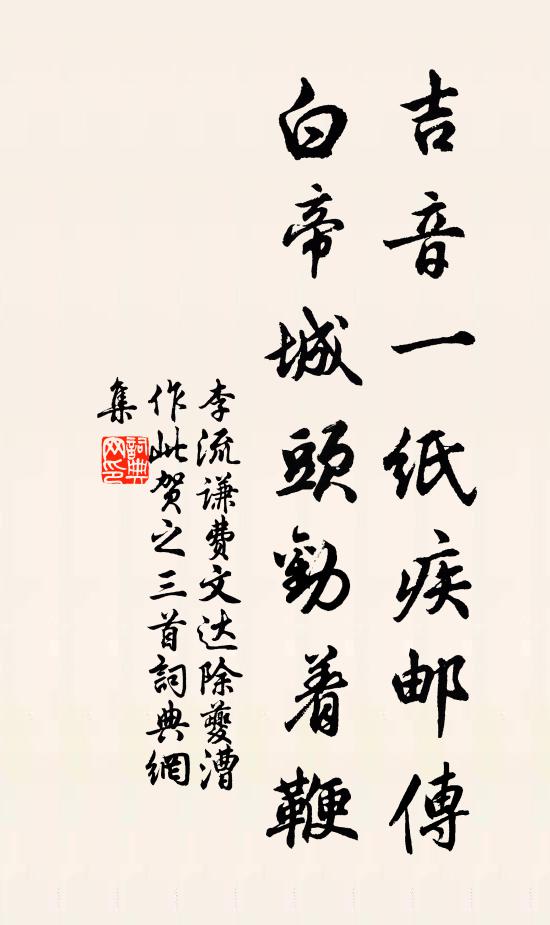 吉音一紙疾邮傳
白帝城頭勸着鞭
李流谦费文达除夔漕
作此贺之三首詞典網
集
詞典网印